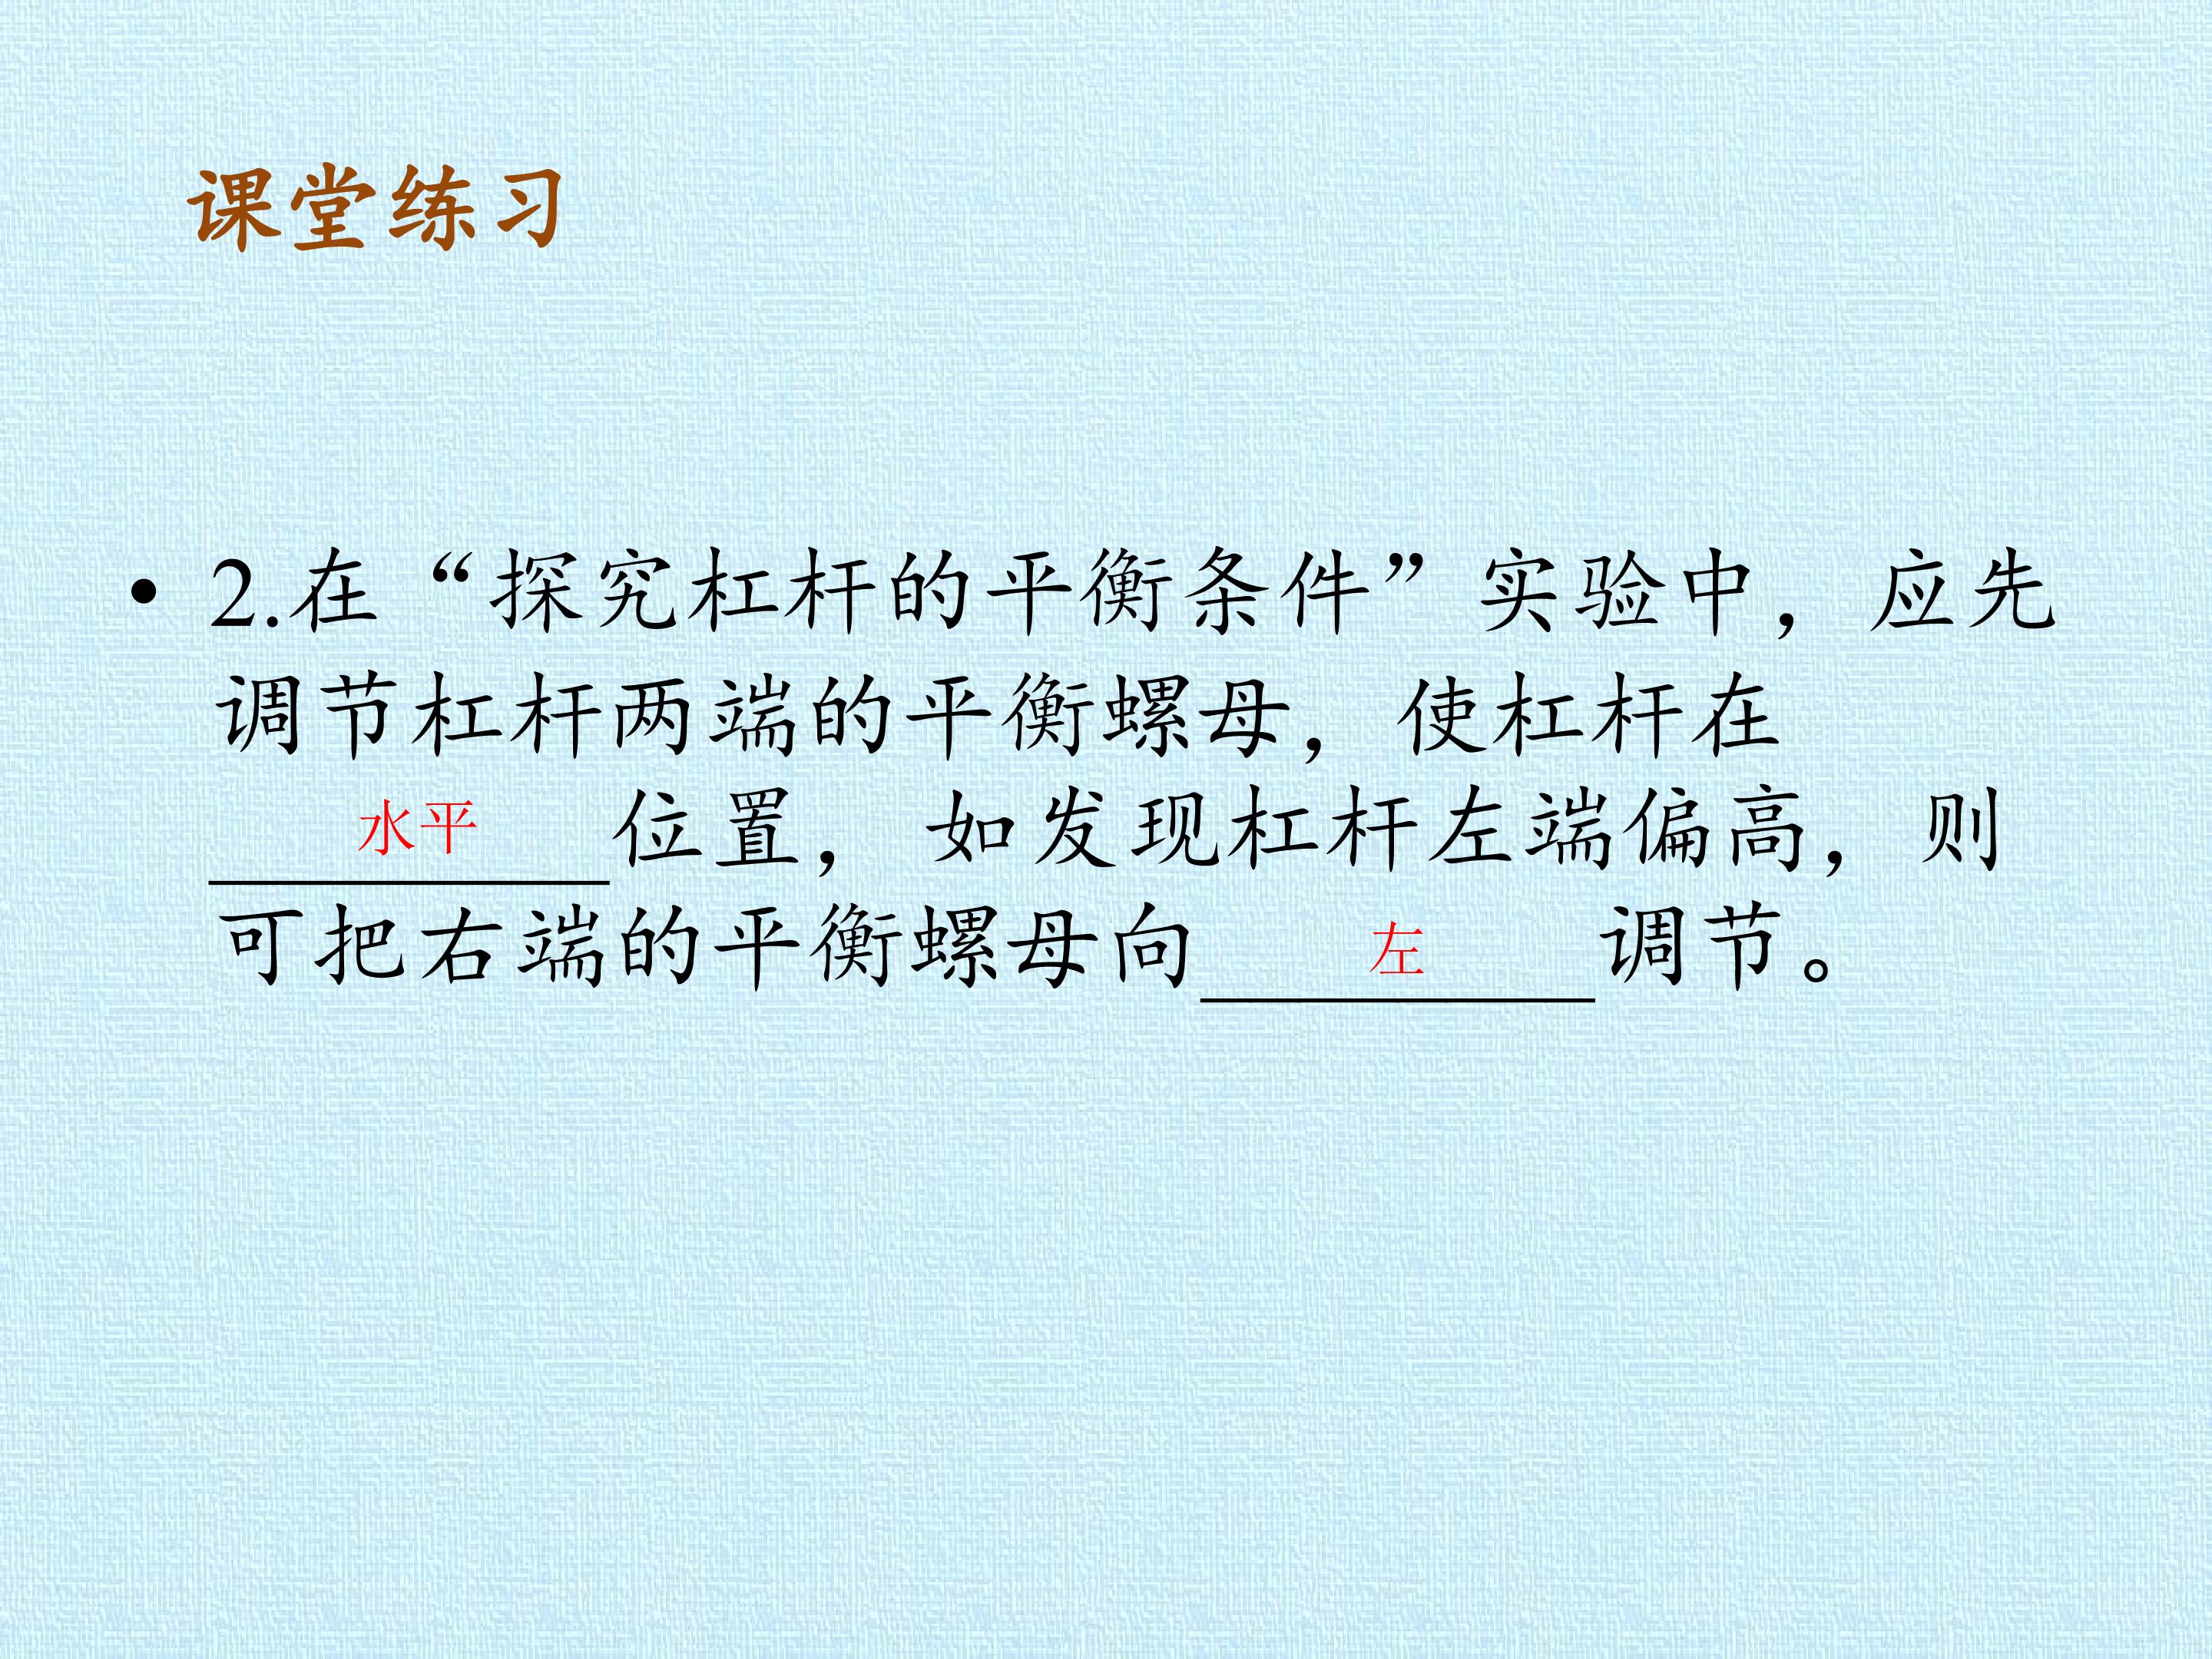 课堂练习
• 2.在“探究杠杆的平衡条件”实验中，应先
调节杠杆两端的平衡螺母，使杠杆在
水平位置，如发现杠杆左端偏高，则
可把右端的平衡螺母向左调节。